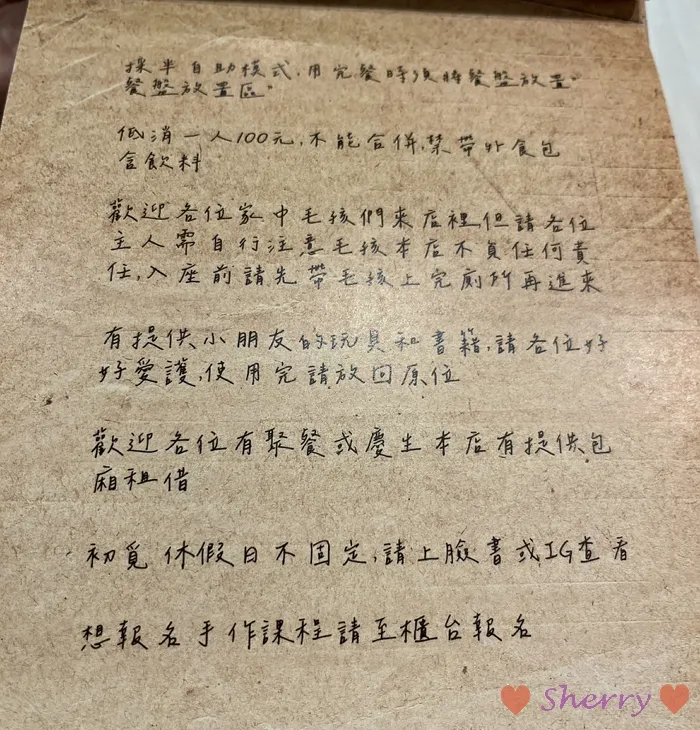 採半自助模式,用完餐時須將餐盤放置"
餐盤放置區"
低消一人100元,不能合併,禁帶外食包
含飲料
歡迎各位家中毛孩們來店裡,但請各位
主人需自行注意毛孩本店不負任何責
任,入座前請先帶毛孩上完廁所再進來
有提供小朋友的玩具和書籍,請各位好
好愛護,使用完請放回原位
歡迎各位有聚餐或慶生本店有提供包
廂租借
初覓休假日不固定,請上臉書或IG查看
想報名手作課程請至櫃台報名
Sherry